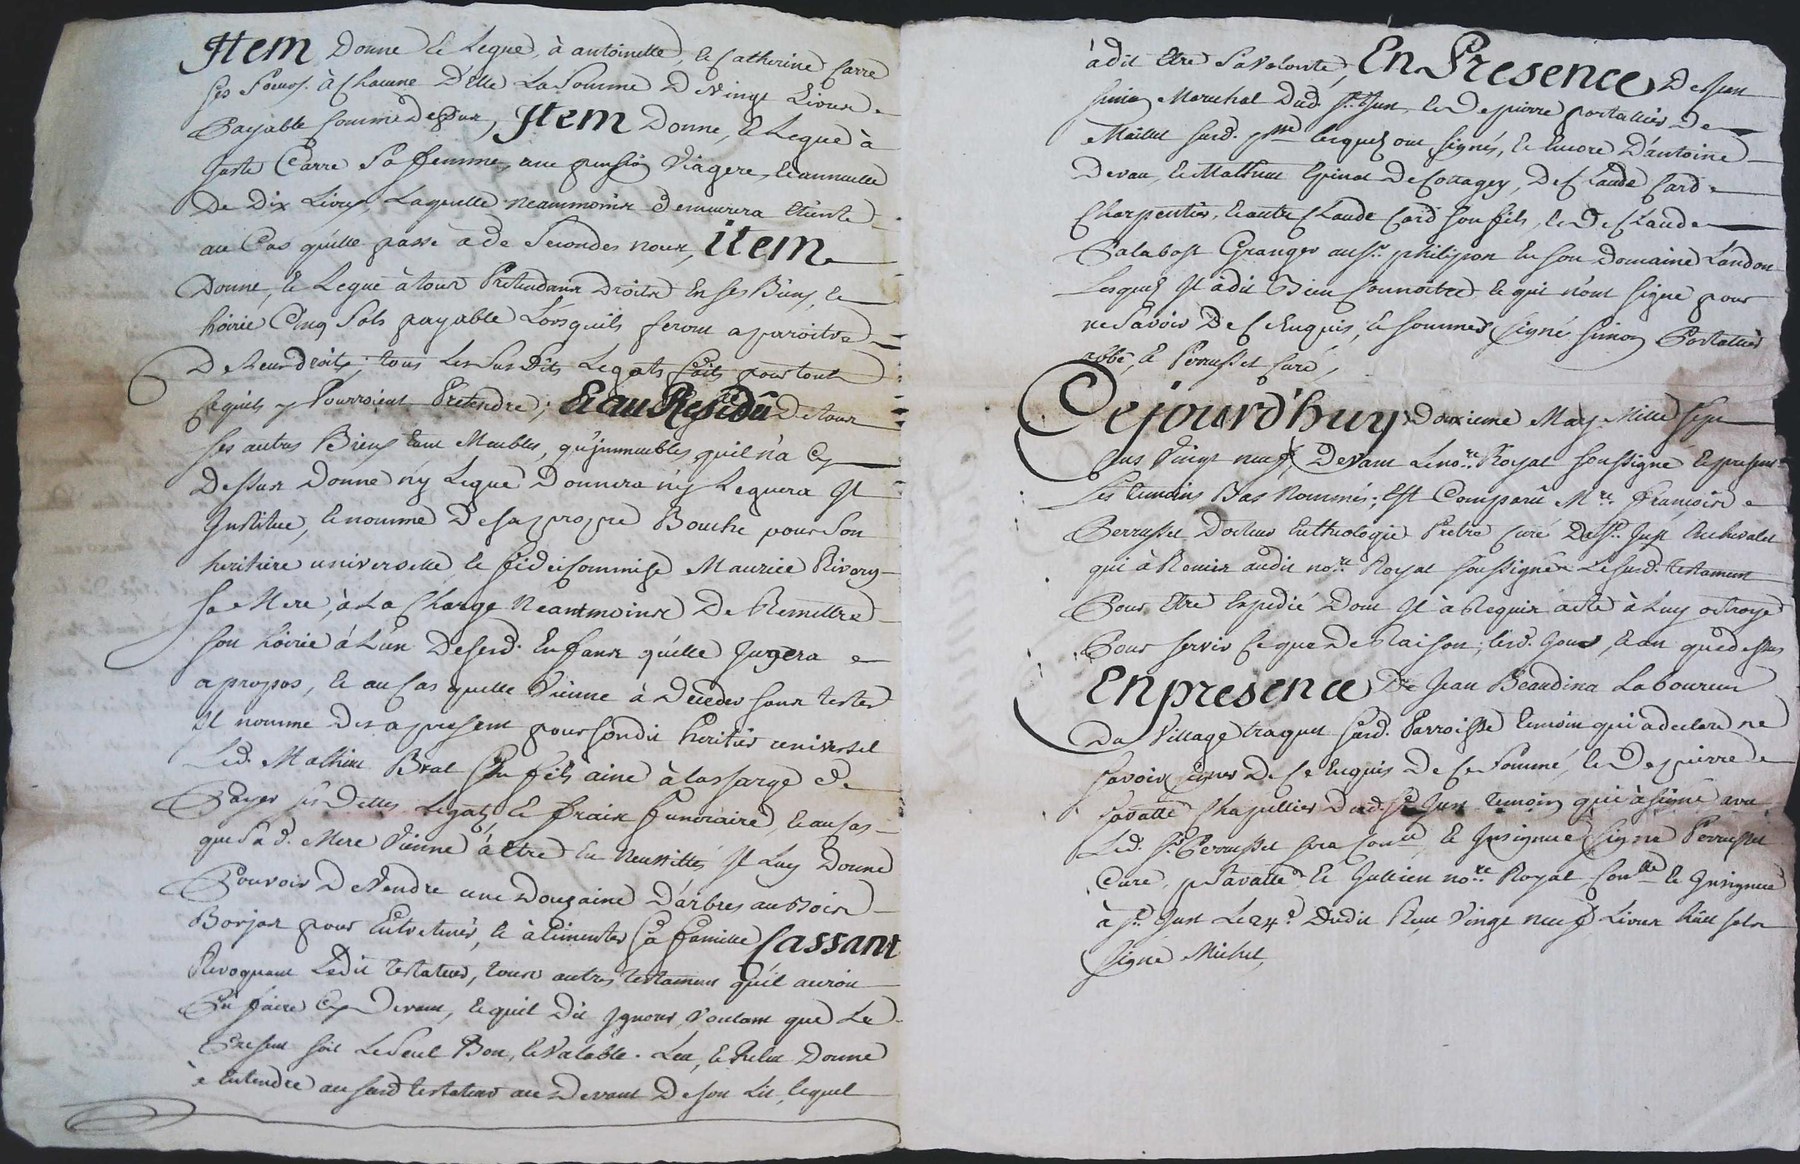 Item Donne & Legue, à antoinette, & Catherine Carre
ses soeurs. à Chacune D'elle La Somme De Vingt Livres
Payable Comme Dessus, Item Donne, & Legue à
Juste Carre Sa femme, une pension Viagere, & annuelle
De Dix Livres Laquelle neammoins Demeurera Eteinte
au Cas qu'elle passe à de Secondes noces, item
Donne, & Legue à tous Pretendans Droits En ses Biens, &
hoirie Cinq Sols payable Lorsquils feront aparoitre
De Leur droits; tous Les Sus Dits Legats faits pour tout
Cequils y Pourroient Pretendre; Et au Residû De tous
ses autres Biens tant Meubles, qu'immeubles quil n'a Cy
Dessus Donné ny Legué Donnera ny Leguera Il
Institue, & nomme De sa propre Bouche pour Son
heritiere universelle & fideicommise Maurice Rivory
Sa Mere, à La Charge Neantmoins De Remettre
son hoirie à L'un De sesd. Enfans qu'elle Jugera
apropos, & au Cas quelle Vienne à Deceder sans tester
Il nomme Des apresent pour sondit heritier universel
Led. Mathieu Brat Son fils ainé à la ssarge de
Payer ses Dettes Legats & fraix funeraire, & au Cas
que Sad. Mere Vienne à être En Neussitté Il Luy Donne
Pouvoir De Vendre une Douzaine D'arbres au Bois
Borjas pour Entretenir, & alimenter Sa famille Cassant
Revoquant Ledit testateur, tous autres testamens qu'il auroit
Pû faire Cy Devant, & quil Dit Ignorer Voulant que Le
Present soit Le Seul Bon, & Valable. Leu, & Relu Donné
à Entendre au susd testateur au Devant De son Lit, lequel
à dit Etre Sa Volonté, En Presence De Jean
Simon Marechal Dud. St. Just, & De pierre portallier De
Maillet susd. psse lesquels ont signés, & Encore D'antoine
Devau, & Mathieu Epinat De Cottagey, De Claude Card
Charpentier, & autre Claude Card Son fils, & De Claude
Palabost Granger au Sr. philippon En son Domaine Landon
Lesquels Il à dit Bien Connoitre & qui n'ont signé pour
ne Savoir De Ce Enquis, & Sommés signé Simon Portallier
abbé, & Perrusset Curé,
Cejourd'huy Douxieme May Mille Sept
Cens Vingt neuf Devant Le nore. Royal Soussigné & presens
Les temoins Bas Nommés; Est Comparû Mre. françois
Perrusset Docteur En theologie Pretre Curé De St. Just En bas
qui à Remis audit nore. Royal soussigné Le susd. testament
Pour Etre Expedié Dont Il à Requis acte à Luy octroyé
Pour servir Ce que De Raison; lesd. Jour, & an que dessus
En presence De Jean Beaudina Laboureur
Du Village traquet susd. Parroisse temoin qui a declaré ne
savoir signer De Ce Enquis De Ce Sommé, & De pierre
favatte Chapellier Dud. St. Just temoin qui à signé avec
Led. Sr. Perrusset sera Contlé, & Insignué signé Perrusset
Curé, p favatte, & Jullien nore. Royal, Contlé & Insignué
à St. Just Le 24e. Dudit Reçu Vingt neuf Livres huit sols
signé Michel,